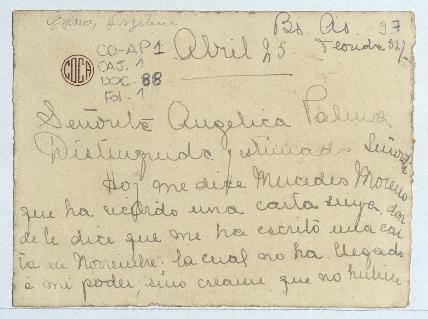 Bs. As. 97
CO-AP1
CAJ. 1
DOC. 88
Fol. 1
COCA
Abril 25
Señorita Angelica Palma
Distinguida y estimada Señorita
Hoy me dice Mercedes Moreno
que ha recibido una carta suya, don
de le dice que me ha escrito una car
ta en Noviembre la cual no ha llegado
a mi poder, sino creame que no hubie